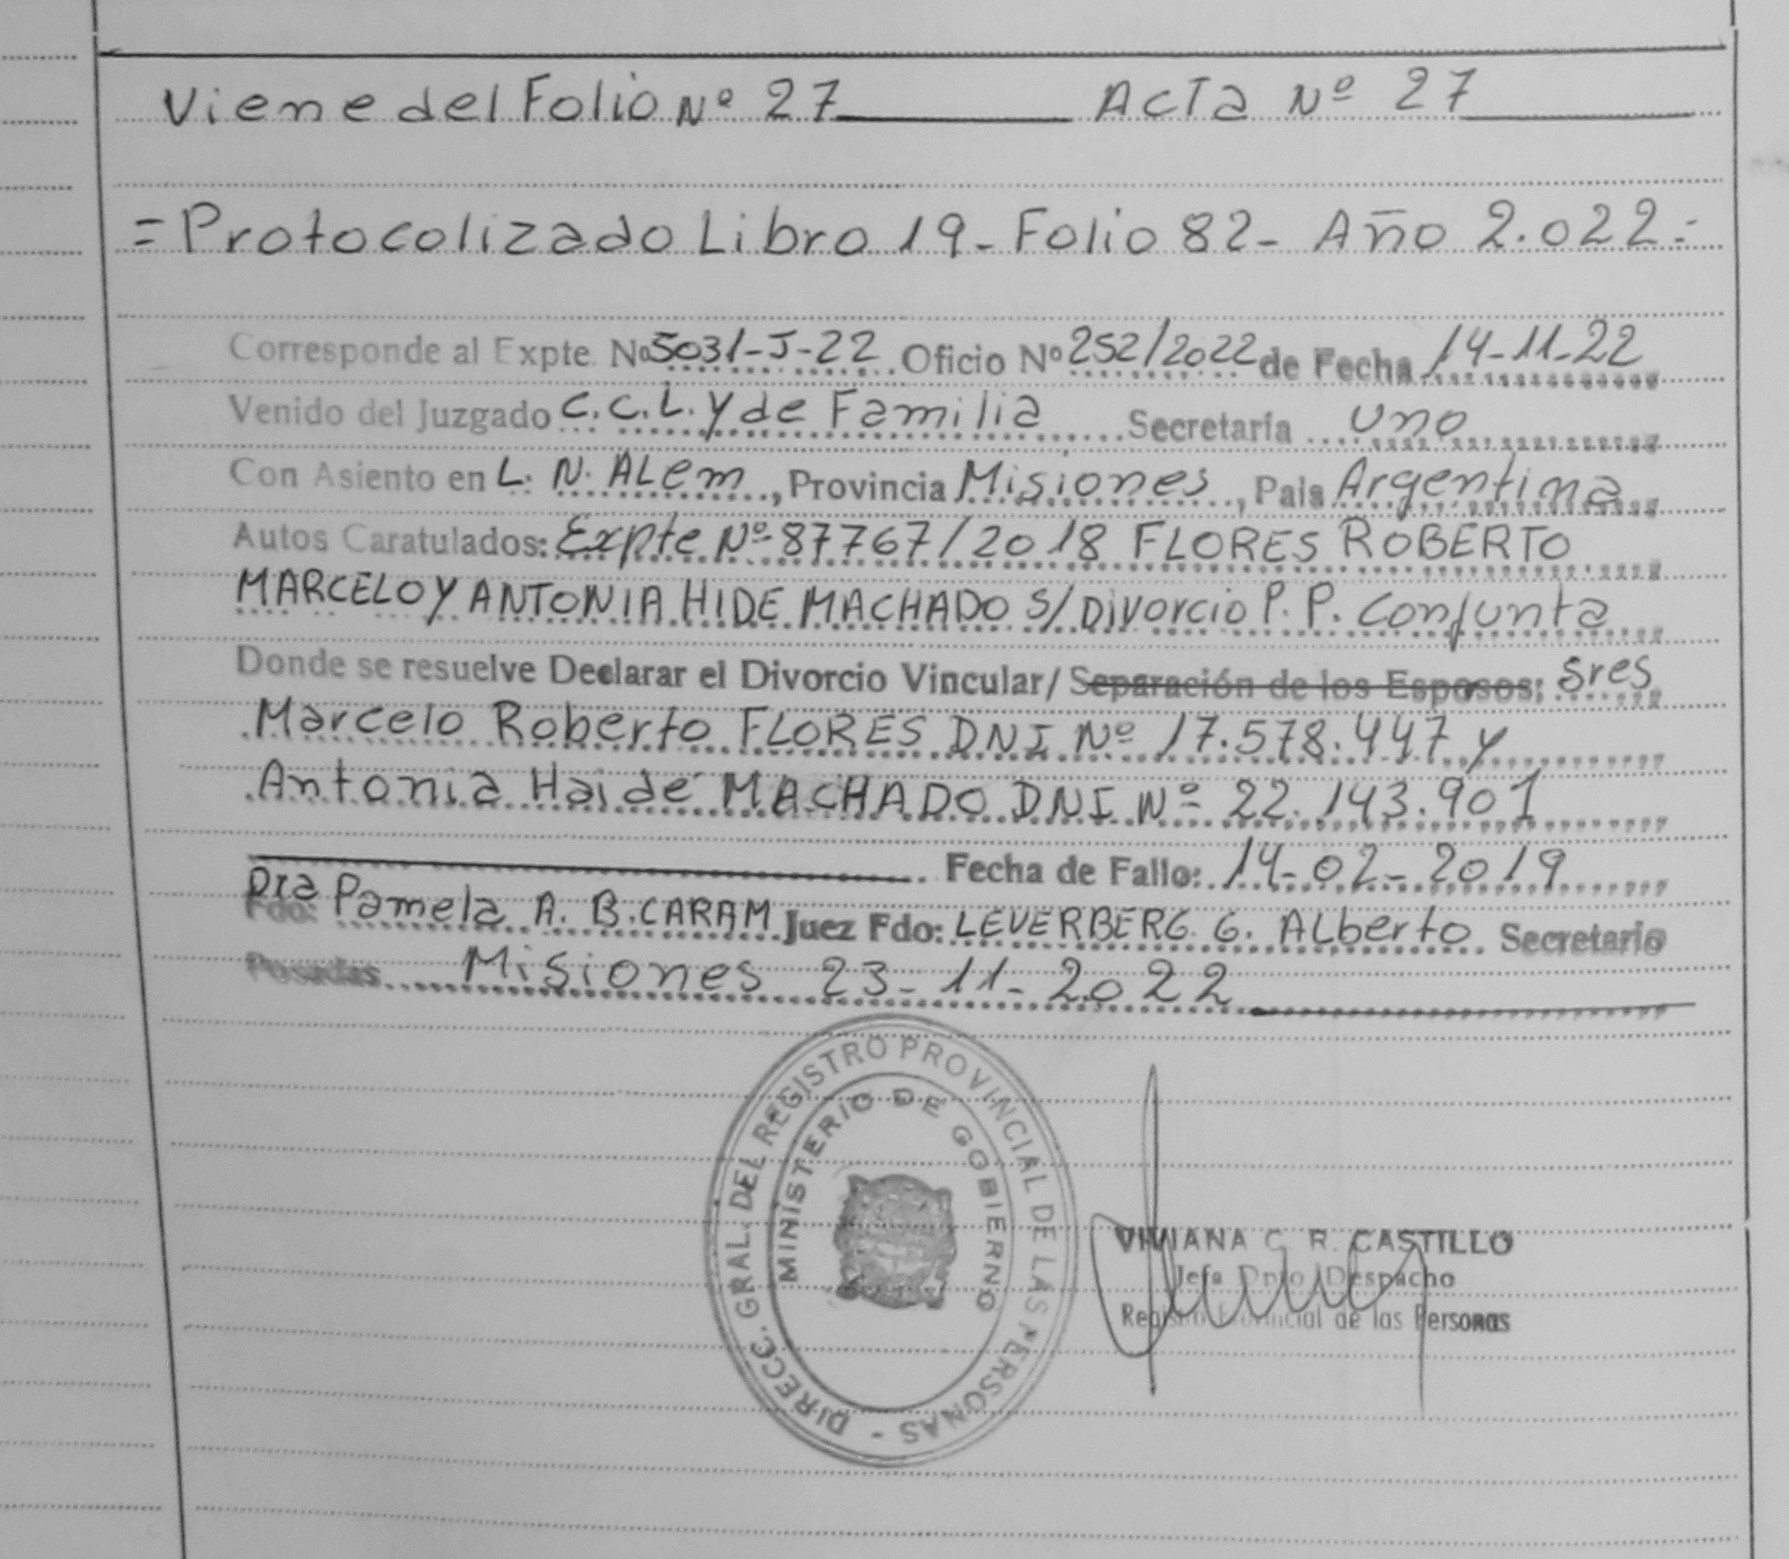 Viene del Folio Nº 27 Acta Nº 27
=Protocolizado Libro 19- Folio 82- Año 2.022=
Corresponde al Expte. Nº 5031-J-22 Oficio Nº 252/2022 de Fecha 14-11-22
Venido del Juzgado C.C.L. y de Familia Secretaría Uno
Con Asiento en L. N. Alem, Provincia Misiones, País Argentina
Autos Caratulados: Expte Nº 87767/2018 FLORES ROBERTO
MARCELO Y ANTONIA HIDE MACHADO S/Divorcio P.P. Conjunta
Donde se resuelve Declarar el Divorcio Vincular/ Separación de los Esposos: Sres
Marcelo Roberto FLORES DNI Nº 17.578.447 y
Antonia Haide MACHADO DNI Nº 22.143.901
Fecha de Fallo: 14-02-2019
Fdo: Dra Pamela A. B. CARAM Juez Fdo: LEVERBERG. G. Alberto Secretario
Posadas Misiones 23-11-2022
DIRECC. GRAL. DEL REGISTRO PROVINCIAL DE LAS PERSONAS -
MINISTERIO DE GOBIERNO
VIVIANA C. R. CASTILLO
Jefa Dpto Despacho
Registro Provincial de las Personas